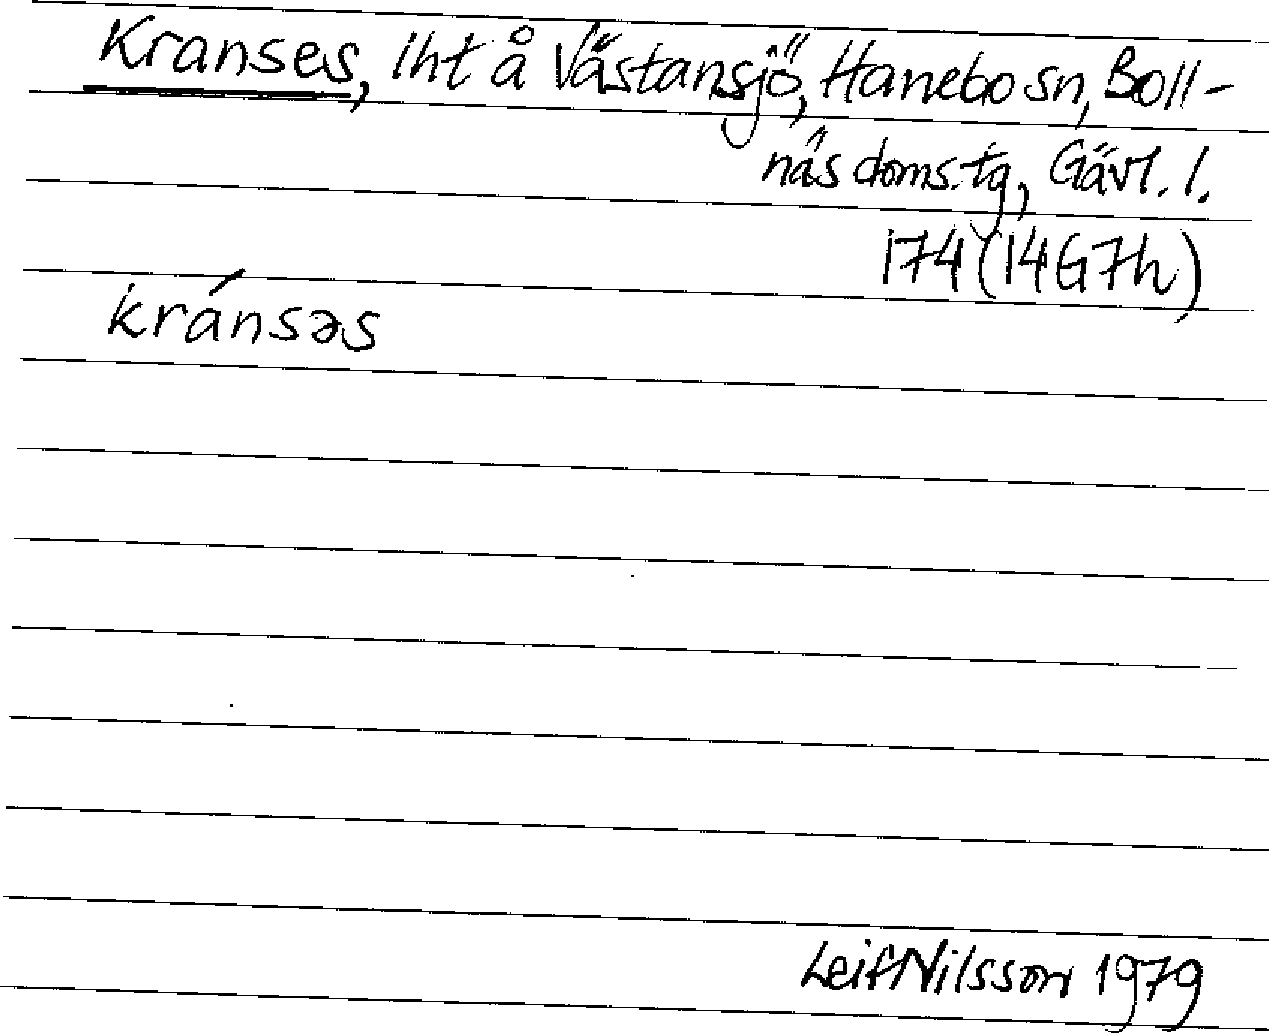 Kranses, iht å Västansjö, Hanebo sn, Boll-
näs doms.tg, Gävl. l.
174 (14G7h)
kránsəs
Leif Nilsson 1979